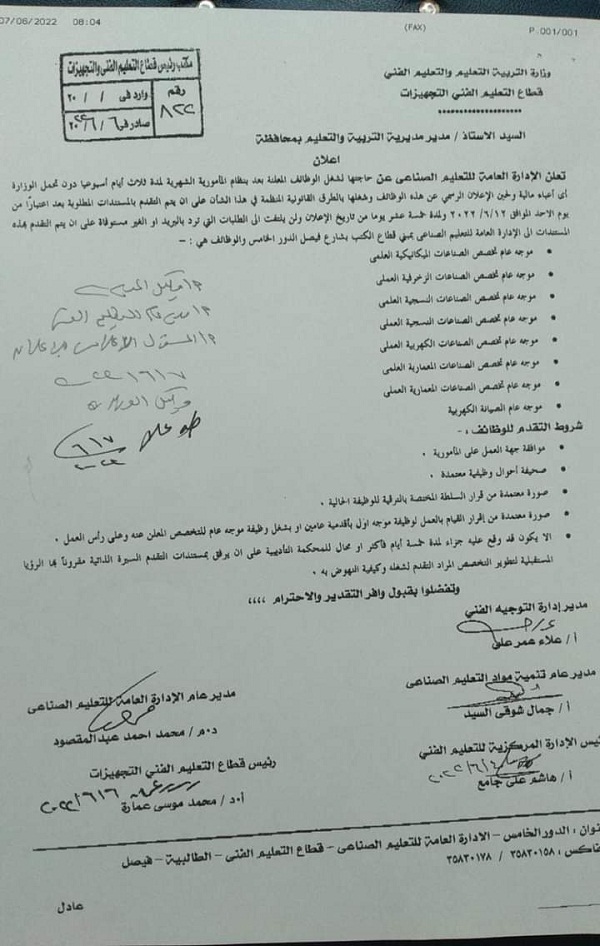 07/06/2022 08:04 (FAX) P.001/001
وزارة التربية التعليم والتعليم الفني
قطاع التعليم الفني التجهيزات
********************
مكتب رئيس قطاع التعليم الفني والتجهيزات
رقم ٨٢٢
وارد في / / ٢٠
صادر في ٦ / ٦ / ٢٠٢٢
السيد الاستاذ / مدير مديرية التربية والتعليم بمحافظة
اعلان
تعلن الإدارة العامة للتعليم الصناعى عن حاجتها لشغل الوظائف المعلنة بعد بنظام المأمورية الشهرية لمدة ثلاث أيام أسبوعيا دون تحمل الوزارة
أى أعباء مالية ولحين الإعلان الرسمي عن هذه الوظائف وشغلها بالطرق القانونية المنظمة في هذا الشأن على ان يتم التقدم بالمستندات المطلوبة بعد اعتبارًا من
يوم الاحد الموافق ٢٠٢٢/٦/١٢ ولمدة خمسة عشر يوما من تاريخ الإعلان ولن يلتفت الى الطلبات التي ترد بالبريد او الغير مستوفاة على ان يتم التقدم بهذه
المستندات الى الإدارة العامة للتعليم الصناعى بمبني قطاع الكتب بشارع فيصل الدور الخامس والوظائف هي : –
• موجه عام تخصص الصناعات الميكانيكية العلمى
• موجه عام تخصص الصناعات الزخرفية العملى
• موجه عام تخصص الصناعات النسجية العلمى
• موجه عام تخصص الصناعات النسجية العملى
• موجه عام تخصص الصناعات الكهربية العملى
• موجه عام تخصص الصناعات المعمارية العلمى
• موجه عام تخصص الصناعات المعمارية العملى
• موجه عام تخصص الصيانة الكهربية
شروط التقدم للوظائف : -
• موافقة جهة العمل على المأمورية .
• صحيفة أحوال وظيفية معتمدة .
• صورة معتمدة من قرار السلطة المختصة بالترقية للوظيفة الحالية .
• صورة معتمدة من إقرار القيام بالعمل لوظيفة موجه اول بأقدمية عامين او يشغل وظيفة موجه عام للتخصص المعلن عنه وعلي رأس العمل .
• الا يكون قد وقع عليه جزاء لمدة خمسة أيام فأكثر او محال للمحكمة التأديبية على ان يرفق بمستندات التقدم السيرة الذاتية مقروناً بها الرؤيا
المستقبلية لتطوير التخصص المراد التقدم لشغله وكيفية النهوض به .
وتفضلوا بقبول وافر التقدير والاحترام ،،،،
مدير إدارة التوجيه الفني
أ / علاء عمر على
مدير عام تنمية مواد التعليم الصناعى
أ / جمال شوقى السيد
مدير عام الإدارة العامة للتعليم الصناعى
د.م / محمد احمد عبدالمقصود
رئيس الإدارة المركزية للتعليم الفني
أ / هاشم على جامع
رئيس قطاع التعليم الفني التجهيزات
أ.د / محمد موسى عمارة
٢٠٢٢/٦/٦
عنوان : الدور الخامس – الادارة العامة للتعليم الصناعى – قطاع التعليم الفنى – الطالبية – فيصل
فاكس : ٣٥٨٣٠١٥٨ / ٣٥٨٣٠١٧٨
عادل